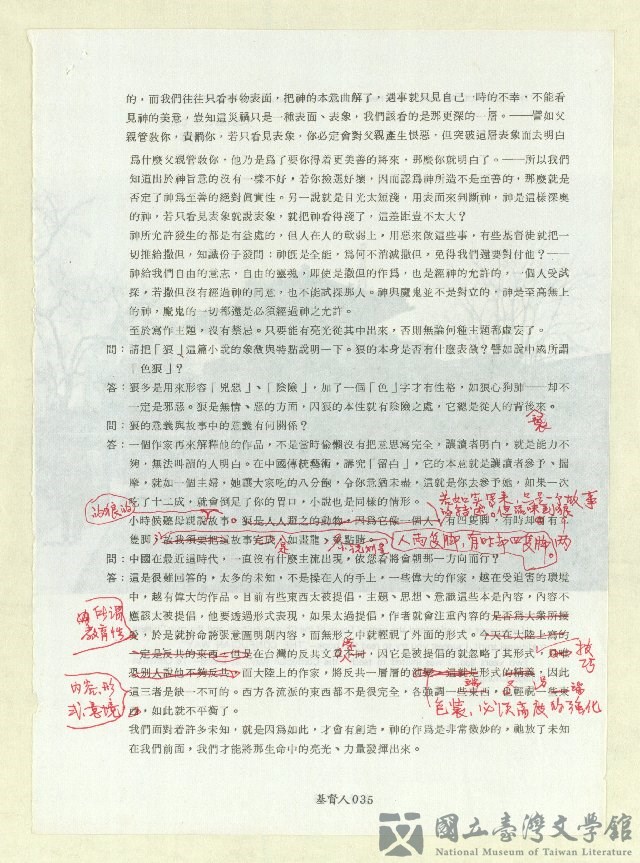 的，而我們往往只看事物表面，把神的本意曲解了，遇事就只見自己一時的不幸，不能看
見神的美意，豈知這災禍只是一種表面、表象，我們該看的是那更深的一層。——譬如父
親管教你，責罰你，若只看見表象，你必定會對父親產生恨惡，但突破這層表象而去明白
爲什麼父親管敎你，他乃是爲了要你得着更美善的將來，那麼你就明白了。——所以我們
知道出於神旨意的沒有一樣不好，若你撿選好壞，因而認爲神所造不是至善的，那麼就是
否定了神爲至善的絕對眞實性。另一說就是目光太短淺，用表面來判斷神，神是這樣深奧
的神，若只看見表象就說表象，就把神看得淺了，這差距豈不太大？
神所允許發生的都是有益處的，但人在人的軟弱上，用惡來做這些事，有些基督徒就把一
切推給撒但，知識份子發問：神旣是全能，爲何不消滅撒但，免得我們還要對付他？——
神給我們自由的意志，自由的靈魂，即使是撒但的作爲，也是經神的允許的，一個人受試
探，若撒但沒有經過神的同意，也不能試探那人。神與魔鬼並不是對立的，神是至高無上
的神，魔鬼的一切都還是必須經過神之允許。
至於寫作主題，沒有禁忌。只要能有亮光從其中出來，否則無論何種主題都虛妄了。
問：請把「狼」這篇小說的象徵與特點說明一下。狼的本身是否有什麼表徵？譬如說中或所謂
「色狼」？
答：狼多是用來形容「兇惡」、「陰險」，加了一個「色」字才有性格，如狼心狗肺——却不
一定是邪惡。狼是無情、惡的方面，因狼的本性就有陰險之處，它總是從人的背後來。
問：狼的意義與故事中的意義有何關係？
答：一個作家再來解釋他的作品，不是當時偷懶沒有把意思寫完全，讓讀者明白，就是能力不
夠，無法叫讀的人明白。在中國傳統藝術，講究「留白」，它的本意就是讓讀者參予、揣
摩，就如一個主婦，她讓大家吃的八分飽，令你意猶未盡，這就是你去參予她，如果一次
吃了十二成，就會倒足了你的胃口，小說也是同樣的情形。
小時候聽母親說故事。狼是人人惡之的動物，因爲它像一個人，有四隻脚，有時却
隻脚
問：中國在最近這時代，一直沒有什麼主流出現，依您看將會朝那一方向而行？
答：這是很難回答的，太多的未知，不是操在人的手上，一些偉大的作家，越在受迫害的環境
中，越有偉大的作品。目前有些東西太被提倡，主題、思想、意識這些本是內容，內容不
應該太被提倡，他要透過形式表現，如果太過提倡，作者就會注重內容的是否爲大衆所接
受，於是就拚命將張意圖明朗內容，而無形之中就輕視了外面的形式。今天在大陸上寫的
一定是反共的東西，但是在台灣的反共文章不同，因它是被提倡的就忽略了其形式，
恐別人說他不夠反共，而大陸上的作家，將反共一層層的 這一就是形式的精義，因此
這三者是缺一不可的。西方各流派的東西都不是很完全，各強調一些東西，也輕視一些東
西，如此就不平衡了。
我們面對着許多未知，就是因爲如此，才會有創造，神的作爲是非常微妙的，祂放了未知
在我們前面，我們才能將那生命中的亮光、力量發揮出來。
人兩隻脚，有時却四隻脚
所謂
教育性
技巧
內容、形
式、意境
包裝，必須高度的強化
基督人 035
國立臺灣文學館
National Museum of Taiwan Literature